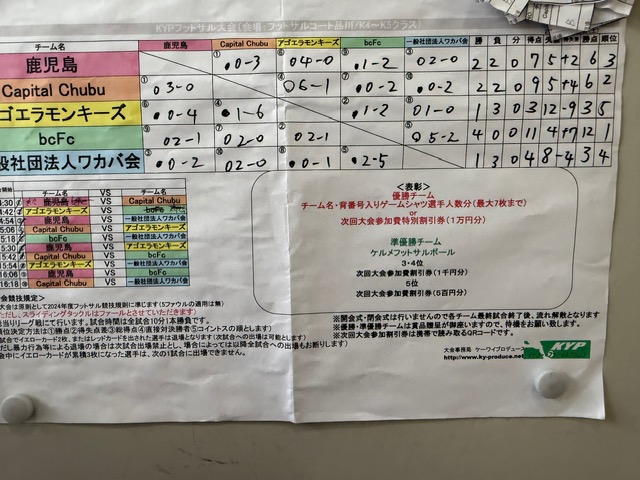 KYPフットサル大会【会場:フットサルコート品川/K4～K5クラス】
チーム名 鹿児島 Capital Chubu アゴエラモンキーズ bcFc 一般社団法人ワカバ会 勝 負 分 得点 失点 勝点 順位
鹿児島 ① ●0-3 ⑥ ○4-0 ⑨ ●1-2 ③ ○2-0 2 2 0 7 5 +2 6 3
Capital Chubu ① ○3-0 ④ ○6-1 ⑦ ●0-2 ⑩ ●0-2 2 2 0 9 5 +4 6 2
アゴエラモンキーズ ⑥ ●0-4 ④ ●1-6 ② ●1-2 ⑧ ○1-0 1 3 0 3 12 -9 3 5
bcFc ⑨ ○2-1 ⑦ ○2-0 ② ○2-1 ⑤ ○5-2 4 0 0 11 4 +7 12 1
般社団法人ワカバ会 ③ ●0-2 ⑩ ○2-0 ⑧ ●0-1 ⑤ ●2-5 1 3 0 4 8 -4 3 4
チーム名 VS チーム名
4:30 鹿児島 VS Capital Chubu
4:42 アゴエラモンキーズ VS bcFc
鹿児島 VS 一般社団法人ワカバ会
Capital Chubu VS アゴエラモンキーズ
5:18 bcFc VS 一般社団法人ワカバ会
鹿児島 VS アゴエラモンキーズ
Capital Chubu VS bcFc
5:54 アゴエラモンキーズ VS 一般社団法人ワカバ会
16:06 鹿児島 VS bcFc
16:18 Capital Chubu VS 一般社団法人ワカバ会
<表彰>
優勝チーム
チーム名・背番号入りゲームシャツ選手人数分(最大7枚まで)
or
次回大会参加費特別割引券(1万円分)
準優勝チーム
ケルメフットサルボール
3・4位
次回大会参加費割引券(1千円分)
5位
次回大会参加費割引券(5百円分)
会競技規定>
大会は原則として2024年度フットサル競技規則に準じます(5ファウルの適用は無)
ただし、スライディングタックルはファールとさせていただきます
総当りリーグ戦にて行います。試合時間は全試合10分1本勝負です。
順位決定方法は①勝点②得失点差③総得点④直接対決勝者⑤コイントスの順とします)
試合でイエローカード2枚、またはレッドカードを出された選手は退場となります(次試合への出場は可能)
ただし暴力行為等による退場の場合は次試合出場禁止とし、場合によっては以降全試合への出場もお断りします)
会中にイエローカードが累積3枚になった選手は、次の1試合に出場できません。
※開会式・閉会式は行いませんので各チーム最終試合終了後、流れ解散となります
※優勝・準優勝チームは賞品贈呈が御座いますので、待機をお願い致します。
※次回大会参加費割引券は携帯で読み取るQRコードです。
大会事務局 ケーワイプロデュース
http://www.ky-produce.net
KYP